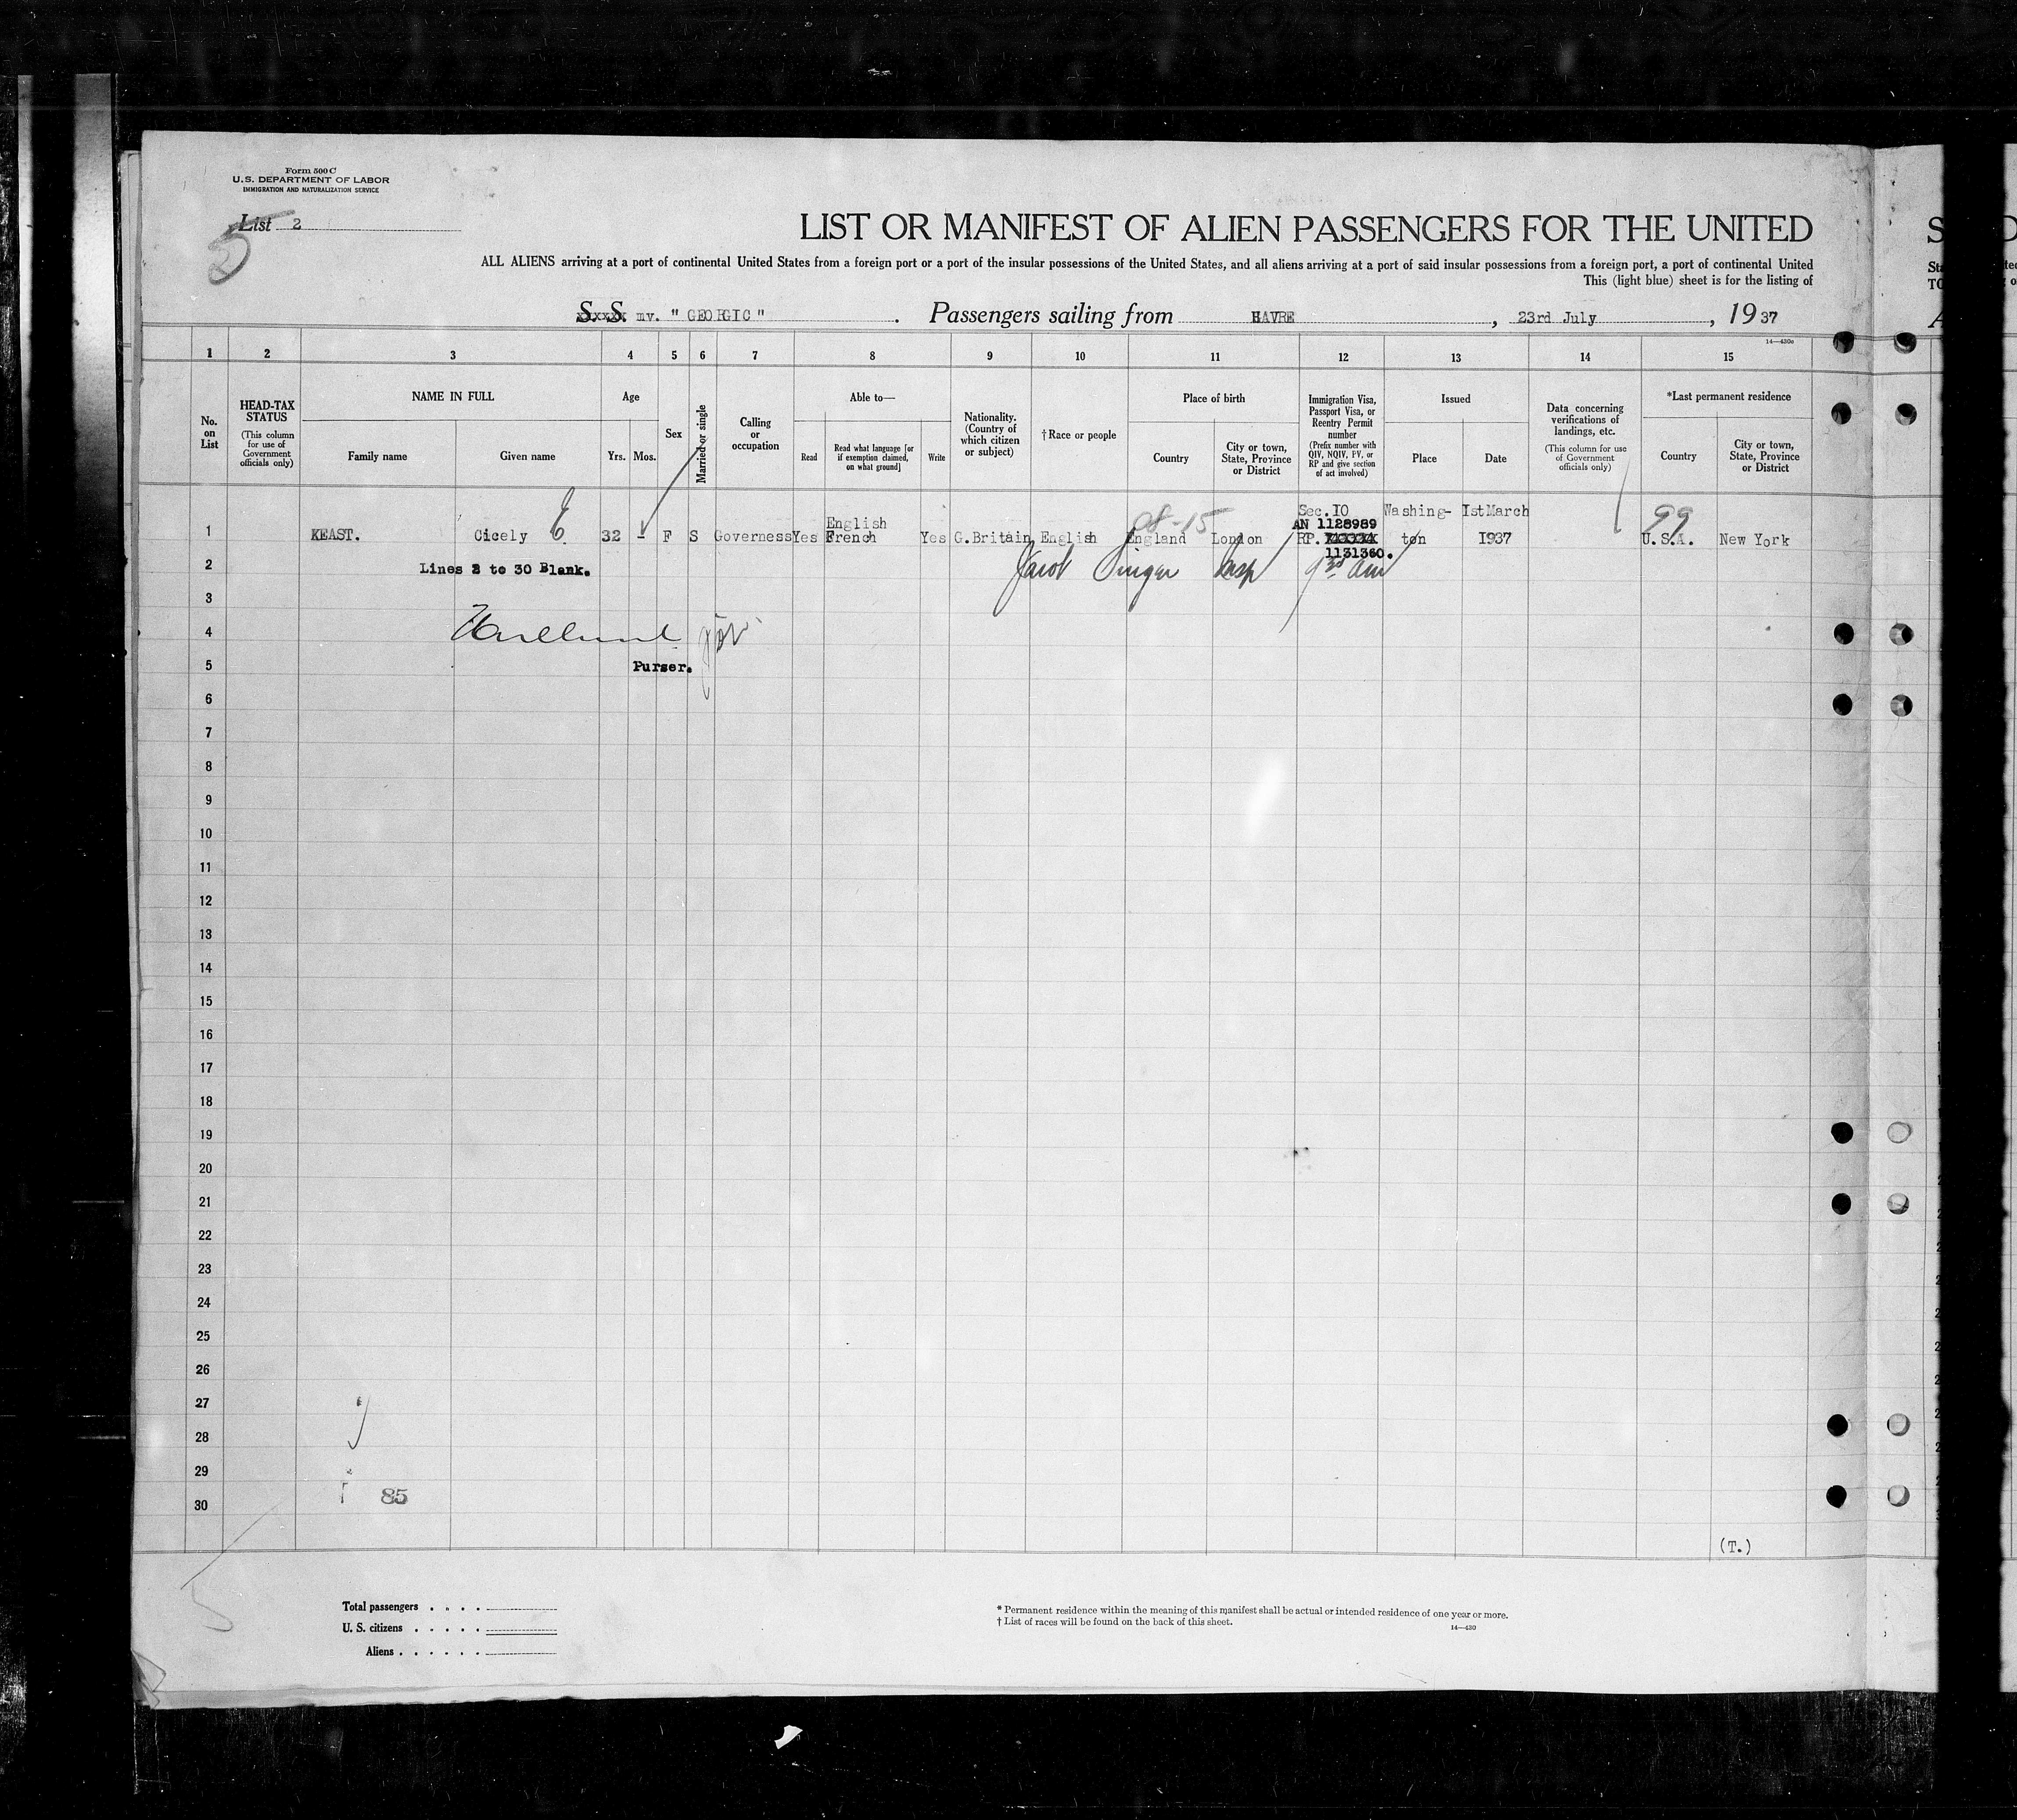 Form 500 C
U.S. DEPARTMENT OF LABOR
IMMIGRATION AND NATURALIZATION SERVICE
List 2
5
LIST OR MANIFEST OF ALIEN PASSENGERS FOR THE UNITED
ALL ALIENS arriving at a port of continental United States from a foreign port or a port of the insular possessions of the United States, and all aliens arriving at a port of said insular possessions from a foreign port, a port of continental United
This (light blue) sheet is for the listing of
S. S. mv. " GEORGIC " . Passengers sailing from HAVRE , 23rd July , 19 37
14—430c
1 2 3 4 5 6 7 8 9 10 11 12 13 14 15
No. on List
HEAD-TAX STATUS
(This column for use of Government officials only)
NAME IN FULL
Family name
Given name
Age
Yrs. Mos.
Sex
Married or single
Calling or occupation
Able to—
Read
Read what language [or if exemption claimed, on what ground]
Write
Nationality. (Country of which citizen or subject)
†Race or people
Place of birth
Country
City or town, State, Province or District
Immigration Visa, Passport Visa, or Reentry Permit number
(Prefix number with QIV, NQIV, PV, or RP and give section of act involved)
Issued
Place
Date
Data concerning verifications of landings, etc.
(This column for use of Government officials only)
*Last permanent residence
Country
City or town, State, Province or District
English Sec.IO Washing- IstMarch
08-15 AN 1128989 99
1 KEAST. Cicely E. 32 - F S Governess Yes French Yes G.Britain English England London RP. ton I937 U.S.A. New York
1131360.
2 Lines 2 to 30 Blank. Jacob Singer Insp
3
4
5 Purser.
6
7
8
9
10
11
12
13
14
15
16
17
18
19
20
21
22
23
24
25
26
27
28
29
30 85
(T.)
Total passengers . . . .
U. S. citizens . . . . .
Aliens . . . . . .
* Permanent residence within the meaning of this manifest shall be actual or intended residence of one year or more.
† List of races will be found on the back of this sheet.
14—430